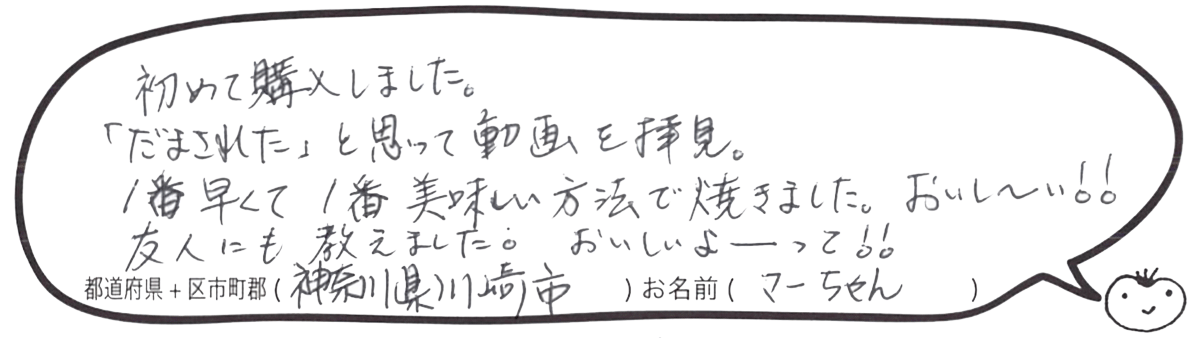 初めて購入しました。
「だまされた」と思って動画を拝見。
1番早くて1番美味しい方法で焼きました。おいし〜い!!
友人にも教えました。おいしいよーって!!
都道府県+区市町郡(神奈川県川崎市)お名前(マーちゃん)